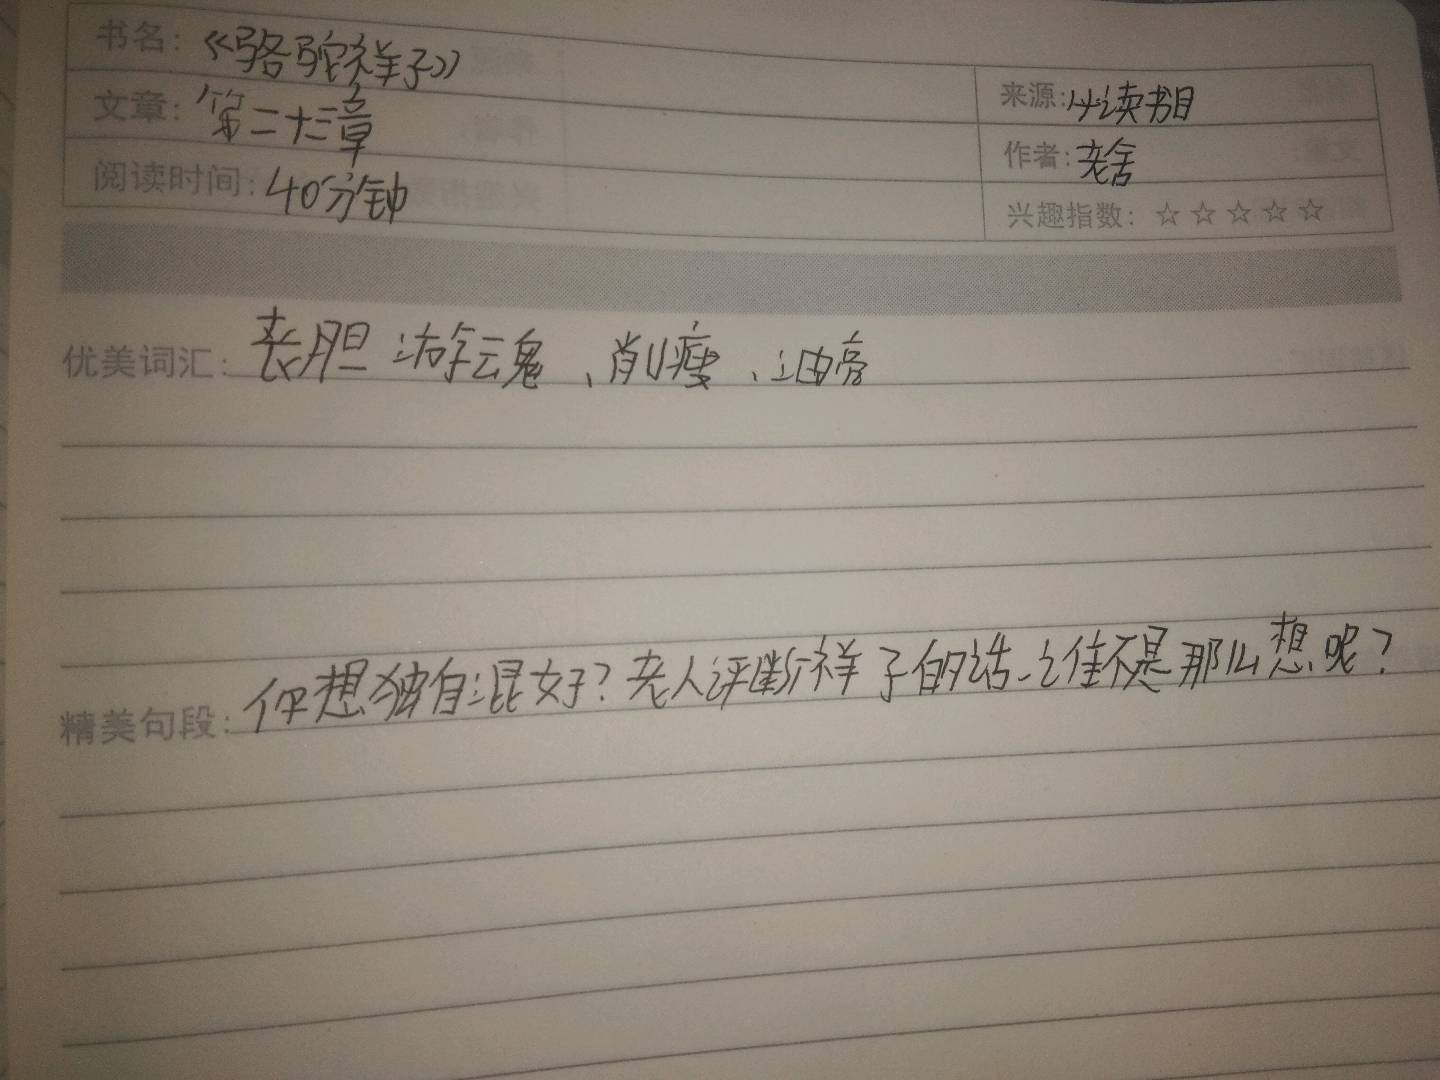 书名：《骆驼祥子》
来源：必读书目
文章：第二十三章
作者：老舍
阅读时间：40分钟
兴趣指数：☆☆☆☆☆
优美词汇：丧胆游云鬼、削瘦、油亮
精美句段：你想独自混好？老人评断祥子的话。谁不是那么想呢？